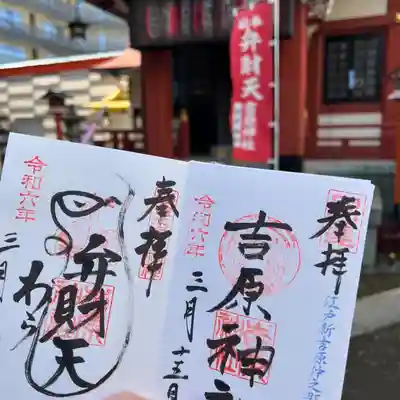 弁財天
奉拝
吉原神
江戸新吉原仲之町
令和六年
三月十三日
奉拝
弁財天
令和六年
三月
わら